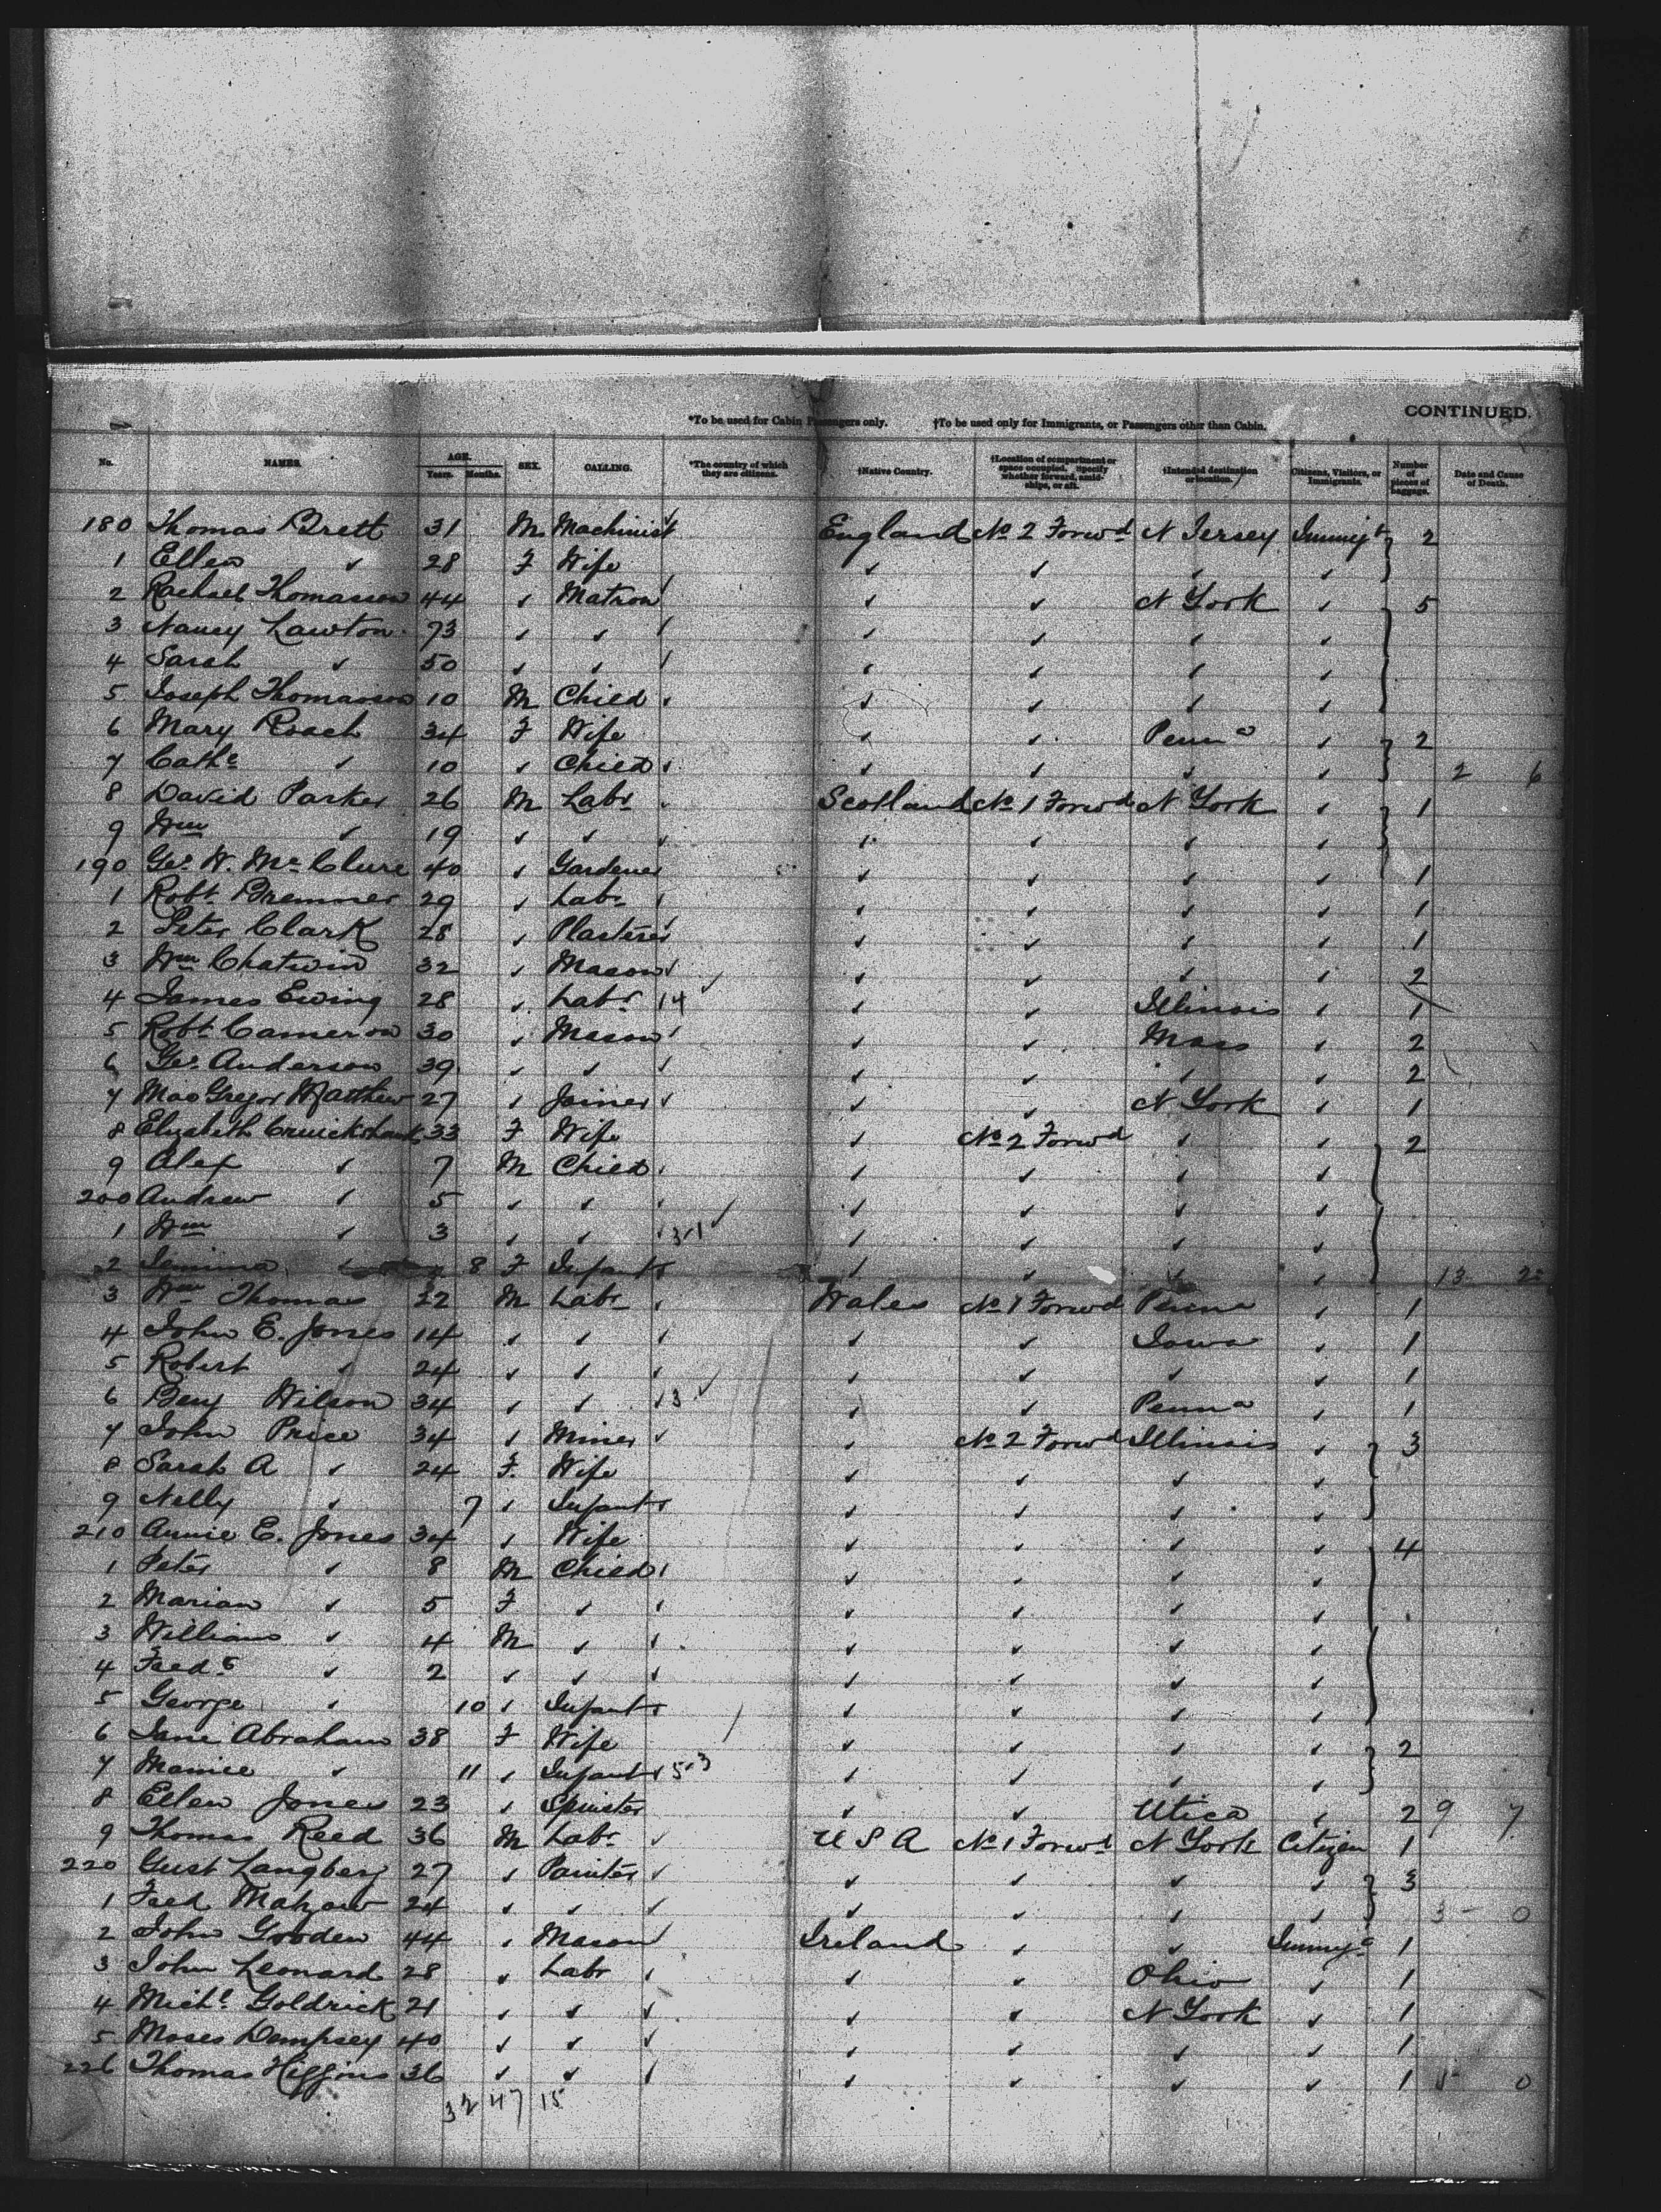 CONTINUED.
*To be used for Cabin Passengers only. †To be used only for Immigrants, or Passengers other than Cabin.
No. NAMES. AGE. Years. Months. SEX. CALLING. *The country of which they are citizens. †Native Country. †Location of compartment or space occupied. Specify whether forward, amidships, or aft. †Intended destination or location. Citizens, Visitors, or Immigrants. Number of pieces of baggage. Date and Cause of Death.
180 Thomas Brett 31 M Machinist England No 2 Forwd N Jersey Immigt 2
1 Ellen " 28 F Wife " " " "
2 Rachael Thomasson 44 " Matron " " N York " 5
3 Nancy Lawton 73 " " " " " "
4 Sarah " 50 " " " " " "
5 Joseph Thomasson 10 M Child " " " "
6 Mary Roach 34 F Wife " " Penna " 2
7 Cathe " 10 " Child " " " " 2 6
8 David Parker 26 M Labr Scotland No 1 Forwd N York " 1
9 Wm " 19 " " " " " "
190 Geo W. McClure 40 " Gardener " " " " 1
1 Robt Bremner 29 " Labr " " " " 1
2 Peter Clark 28 " Plasterer " " " " 1
3 Wm Chatwin 32 " Mason " " " " 2
4 James Ewing 28 " Labr 14 " " Illinois " 1
5 Robt Cameron 30 " Mason " " Mass " 2
6 Geo Anderson 39 " " " " " " 2
7 MacGregor Matthew 27 " Joiner " " N York " 1
8 Elizabeth Cruickshank 33 F Wife " No 2 Forwd " " 2
9 Alex " 7 M Child " " " "
200 Andrew " 5 " " " " " "
1 Wm " 3 " " 3.1 " " " "
2 Jemima " 8 F Infant " " " " 13 2
3 Wm Thomas 22 M Labr Wales No 1 Forwd Penna " 1
4 John E. Jones 14 " " " " Iowa " 1
5 Robert " 24 " " " " " " 1
6 Benj Wilson 34 " " 3 " " Penna " 1
7 John Price 34 " Miner " No 2 Forwd Illinois " 3
8 Sarah A " 24 F Wife " " " "
9 Nelly " 7 " Infant " " " "
210 Annie E. Jones 34 " Wife " " " " 4
1 Peter " 8 M Child " " " "
2 Marian " 5 F " " " " "
3 William " 4 M " " " " "
4 Fredk " 2 " " " " " "
5 George " 10 " Infant " " " "
6 Jane Abraham 38 F Wife " " " " 2
7 Mamie " 11 " Infant 5.3 " " " "
8 Ellen Jones 23 " Spinster " " Utica " 2 9 7
9 Thomas Reed 36 M Labr U S A No 1 Forwd N York Citizen 1
220 Gust Langberg 27 " Painter " " " " 3
1 Fred Matzow 24 " " " " " " 3 0
2 John Gooden 44 " Mason Ireland " " Immigt 1
3 John Leonard 28 " Labr " " Ohio " 1
4 Michl Goldrick 21 " " " " N York " 1
5 Moses Dempsey 40 " " " " " " 1
226 Thomas Higgins 36 " " " " " " 1 5 0
32 47 15